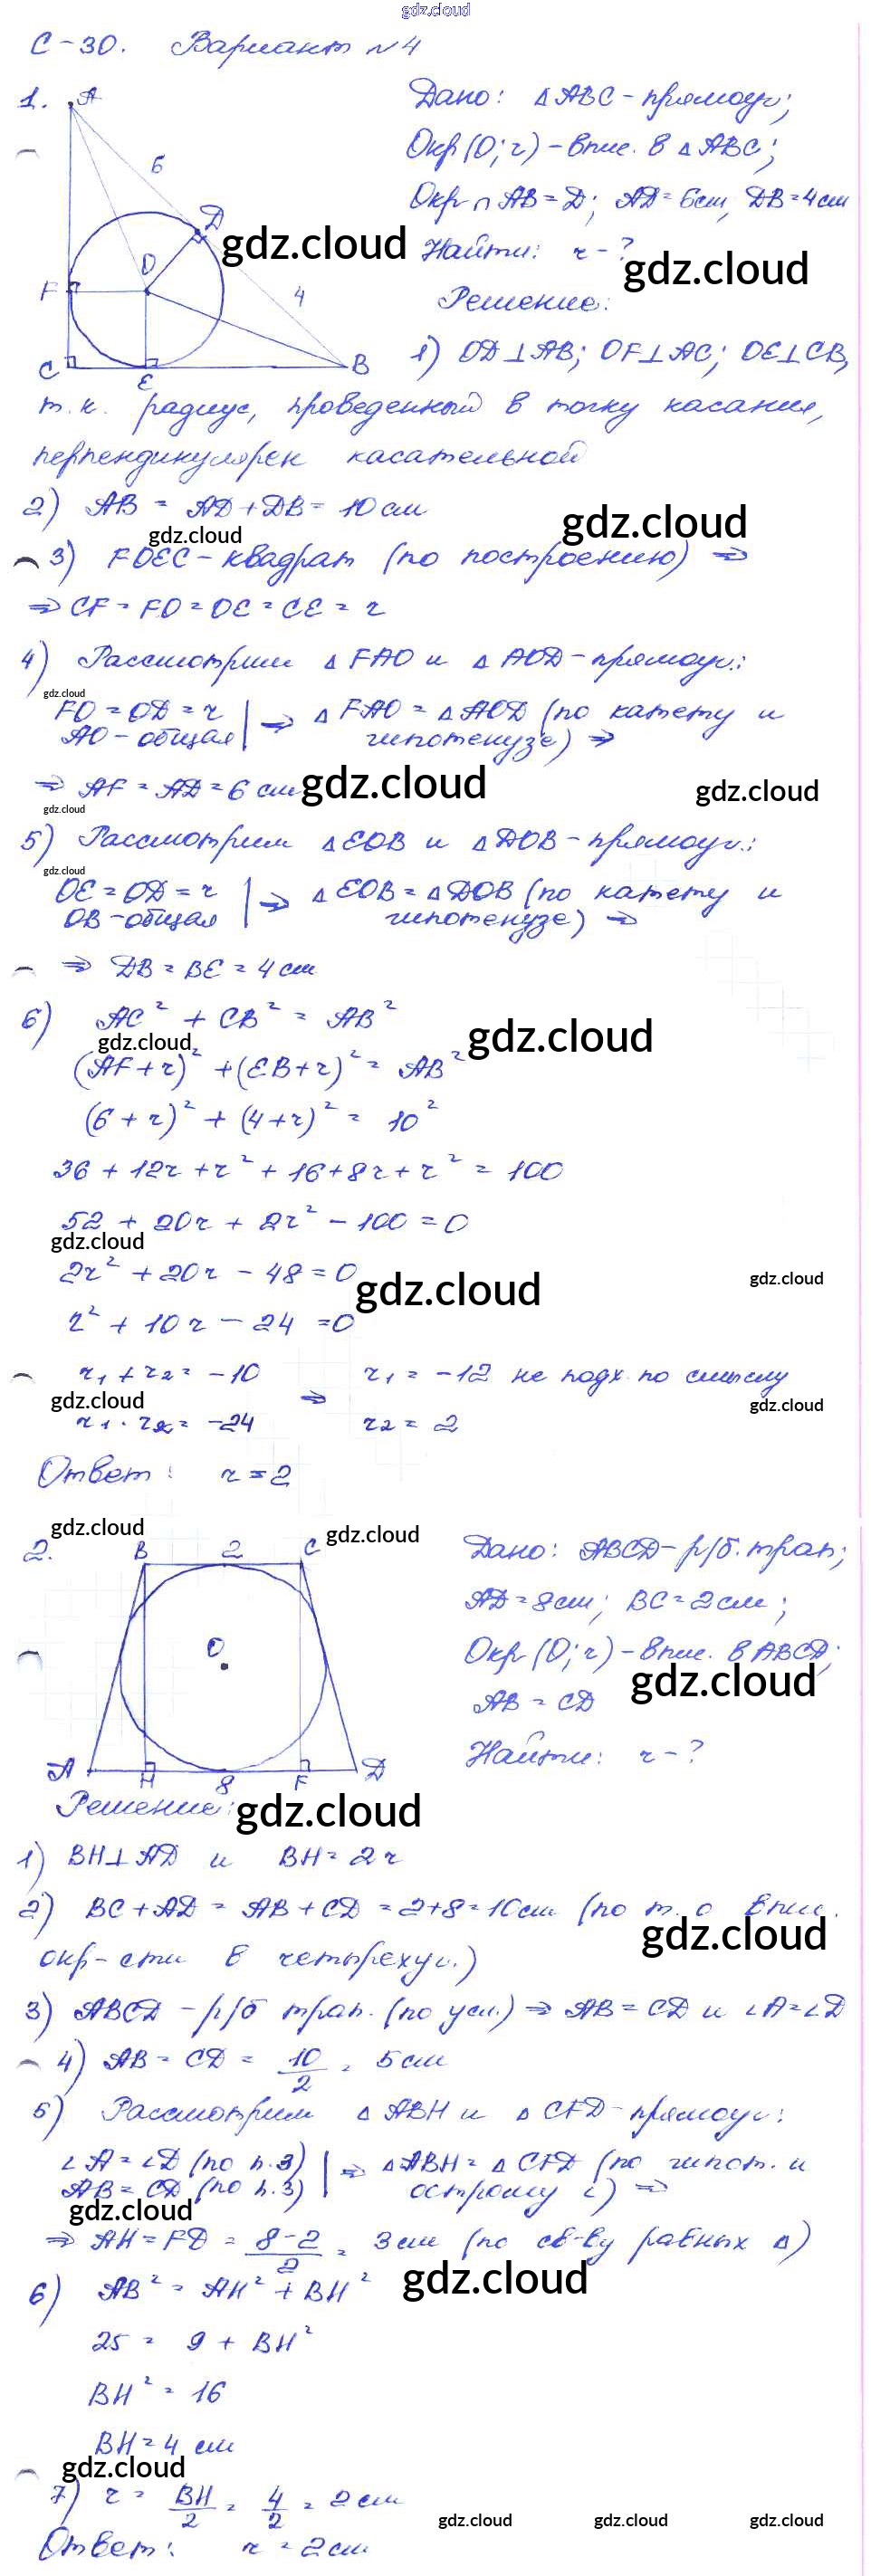 gdz.cloud
С-30. Вариант №4
1. A
Дано: △ABC - прямоуг;
Окр(O; r) - впис. в △ABC;
6
Окр ∩ AB = D; AD = 6см, DB = 4см
D
gdz.cloud
Найти: r - ?
gdz.cloud
O
F
4
Решение:
C
E
B
1) OD⊥AB; OF⊥AC; OE⊥CB,
т.к. радиус, проведенный в точку касания,
перпендикулярен касательной
2) AB = AD + DB = 10 см
gdz.cloud
gdz.cloud
3) FOEC - квадрат (по построению) ⇒
⇒ CF = FO = OE = CE = r
4) Рассмотрим △FAO и △AOD - прямоуг.:
gdz.cloud
FO = OD = r | ⇒ △FAO = △AOD (по катету и
AO - общая | гипотенузе) ⇒
⇒ AF = AD = 6 см
gdz.cloud
gdz.cloud
gdz.cloud
5) Рассмотрим △EOB и △DOB - прямоуг.:
gdz.cloud
OE = OD = r | ⇒ △EOB = △DOB (по катету и
OB - общая | гипотенузе) ⇒
⇒ DB = BE = 4 см
6) AC² + CB² = AB²
gdz.cloud
gdz.cloud
(AF + r)² + (EB + r)² = AB²
(6 + r)² + (4 + r)² = 10²
36 + 12r + r² + 16 + 8r + r² = 100
52 + 20r + 2r² - 100 = 0
gdz.cloud
2r² + 20r - 48 = 0
gdz.cloud
gdz.cloud
r² + 10r - 24 = 0
r₁ + r₂ = -10 ⇒ r₁ = -12 не подх. по смыслу
gdz.cloud
gdz.cloud
r₁ · r₂ = -24 r₂ = 2
Ответ: r = 2
gdz.cloud
gdz.cloud
2. B 2 C
Дано: ABCD - р/б. трап;
AD = 8см; BC = 2см;
O
Окр(O; r) - впис. в ABCD;
gdz.cloud
AB = CD
Найти: r - ?
A H 8 F D
Решение:
gdz.cloud
1) BH⊥AD и BH = 2r
2) BC + AD = AB + CD = 2+8 = 10см (по т. о впис.
gdz.cloud
окр-сти в четырехуг.)
3) ABCD - р/б трап. (по усл.) ⇒ AB = CD и ∠A = ∠D
4) AB = CD = 10/2 = 5 см
5) Рассмотрим △ABH и △CFD - прямоуг:
∠A = ∠D (по п.3) | ⇒ △ABH = △CFD (по гипот. и
AB = CD (по п.3) | острому ∠) ⇒
gdz.cloud
⇒ AH = FD = 8-2/2 = 3 см (по св-ву равных △)
gdz.cloud
6) AB² = AH² + BH²
25 = 9 + BH²
BH² = 16
BH = 4 см
gdz.cloud
7) r = BH/2 = 4/2 = 2 см
gdz.cloud
gdz.cloud
gdz.cloud
Ответ: r = 2 см